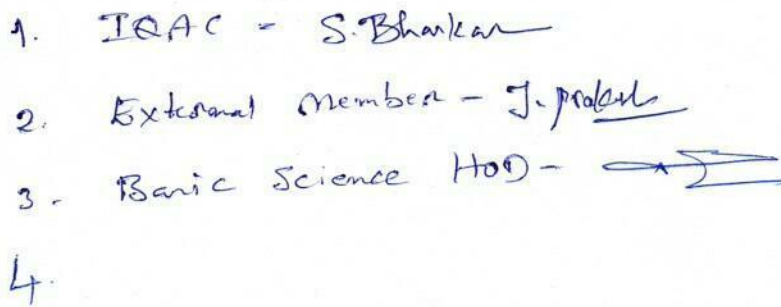 1. IQAC - S. Bhaskar
2. External Member - J. prakash
3. Basic Science HOD -
4.